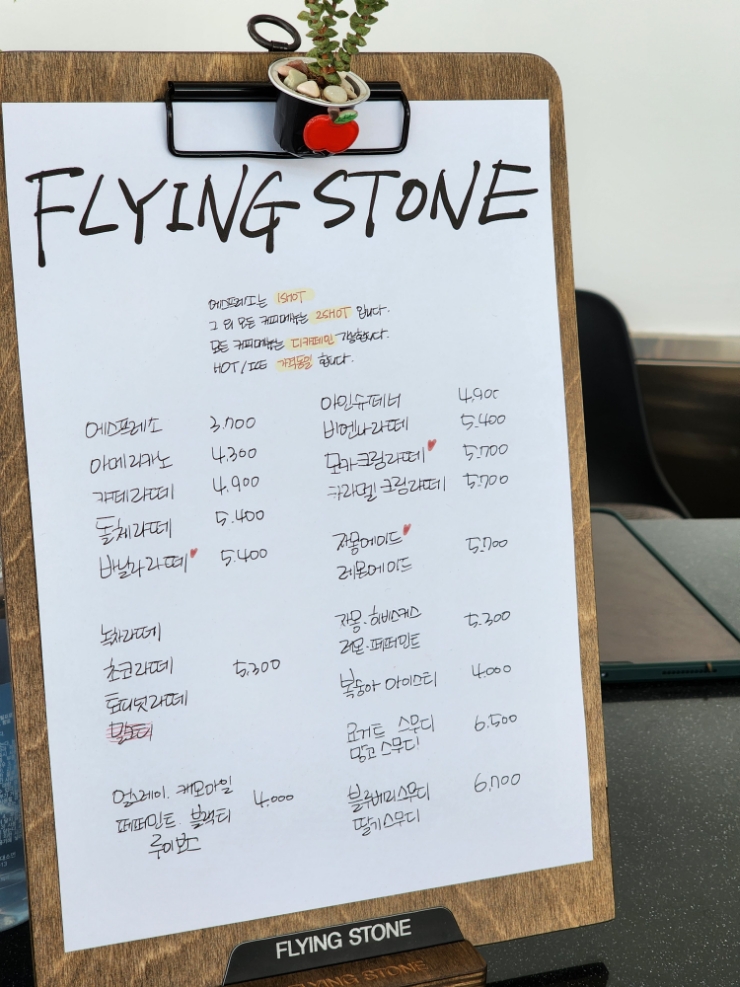 FLYING STONE
에스프레소는 1SHOT
그 외 모든 커피메뉴는 2SHOT 입니다.
모든 커피메뉴는 디카페인 가능합니다.
HOT / ICE 가격동일 합니다.
에스프레소 3.700
아메리카노 4.300
카페라떼 4.900
돌체라떼 5.400
바닐라라떼 5.400
녹차라떼
초코라떼 5.300
토피넛라떼
밀크티
얼그레이. 캐모마일 4.000
페퍼민트. 블랙티
루이보스
아인슈페너 4.900
비엔나라떼 5.400
모카크림라떼 5.700
카라멜크림라떼 5.700
자몽에이드 5.700
레몬에이드
자몽.히비스커스 5.300
레몬.페퍼민트
복숭아 아이스티 4.000
요거트 스무디 6.500
망고스무디
블루베리스무디 6.700
딸기스무디
FLYING STONE
FLYING STONE